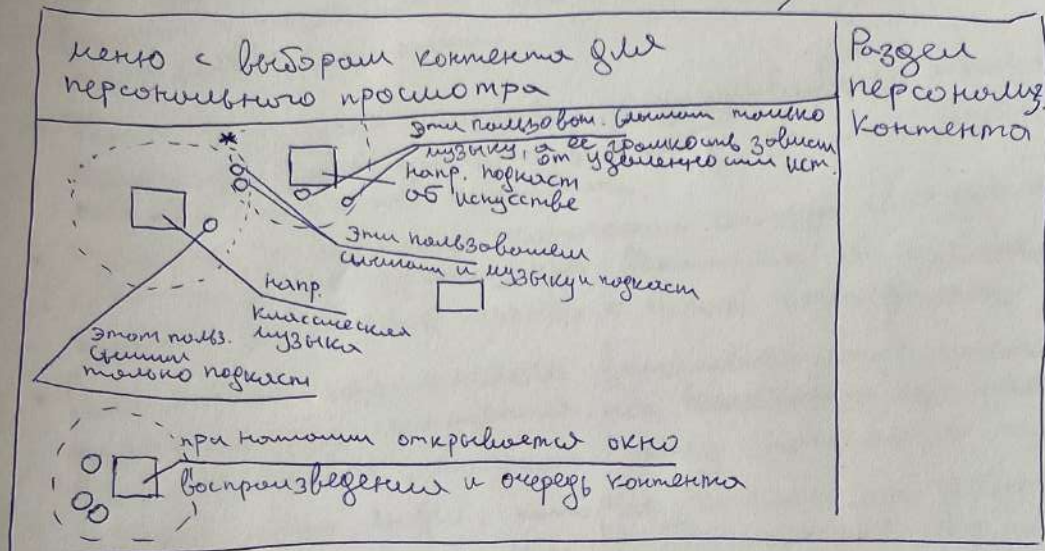 меню с выбором контента для
персонального просмотра
Раздел
персонализ.
контента
*
эти пользоват. слышат только
музыку, а ее громкость зависит
от удаленности ист.
напр. подкаст
об искусстве
эти пользователи
слышат и музыку и подкаст
напр.
классическая
музыка
этот польз.
слышит
только подкаст
при нажатии открывается окно
воспроизведения и очередь контента